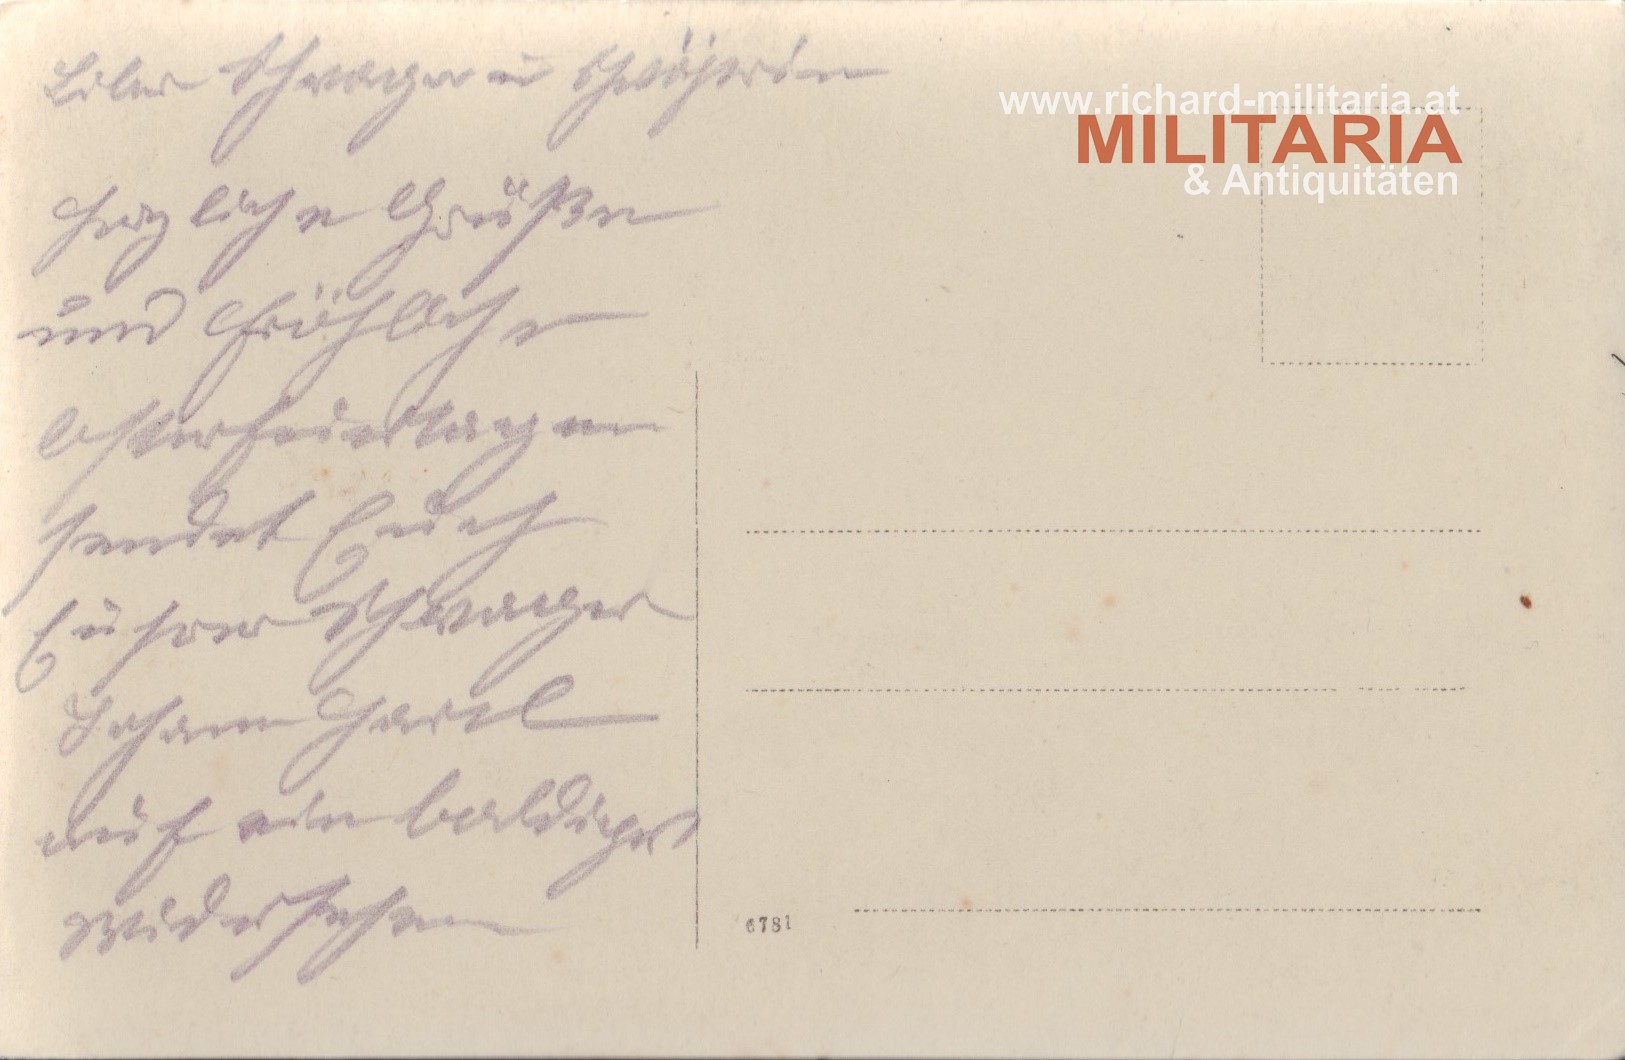 Liber Schwager u Schwöjerin
Herzliche Grüße
und Fröhliche
Osterfeiertagen
sendet Euch
Euhrer Schwager
Johann Hartl
auf ein baldiges
Widersehen
www.richard-militaria.at
MILITARIA
& Antiquitäten
6781